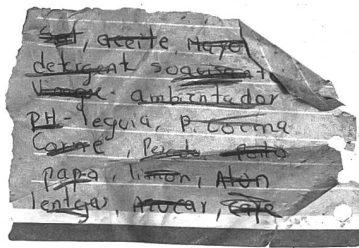 Sal, aceite, Mayo
detergent suavisant
Vinagre - ambientador
PH - leguia, P. cocina
Carne, Pasta Pollo
papa, limon, Atun
lentejas, Azucar, Cafe